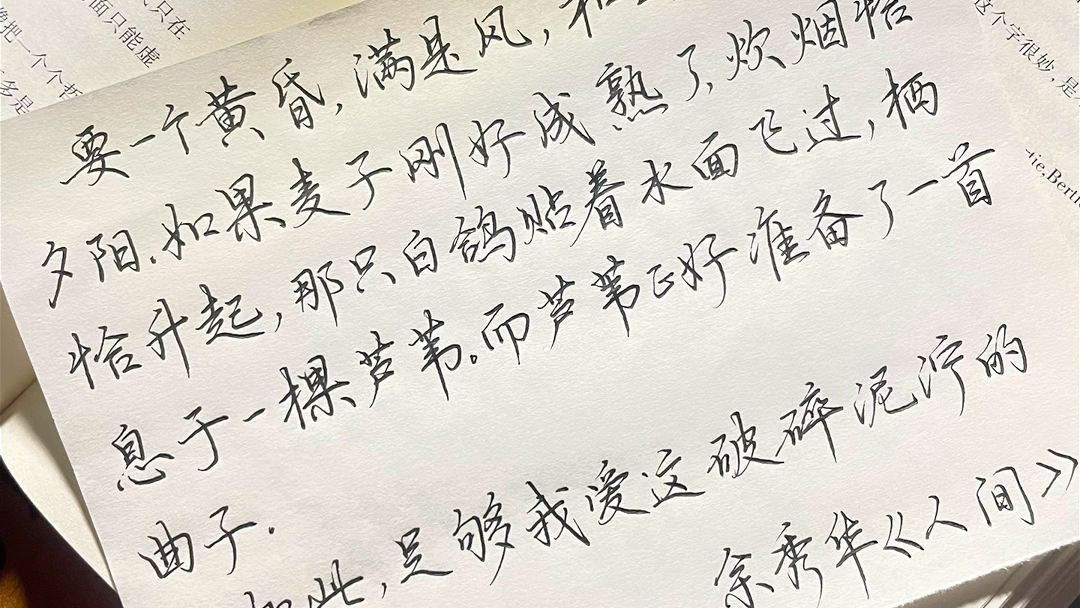 只在
面只能虚
把一个个哲
多是
这个字很妙，是
tie,Berth
要一个黄昏，满是风，和
夕阳.如果麦子刚好成熟了，炊烟恰
恰升起，那只白鸽贴着水面飞过，栖
息于一棵芦苇。而芦苇正好准备了一首
曲子.
如此，足够我爱这破碎泥泞的
余秀华《人间》